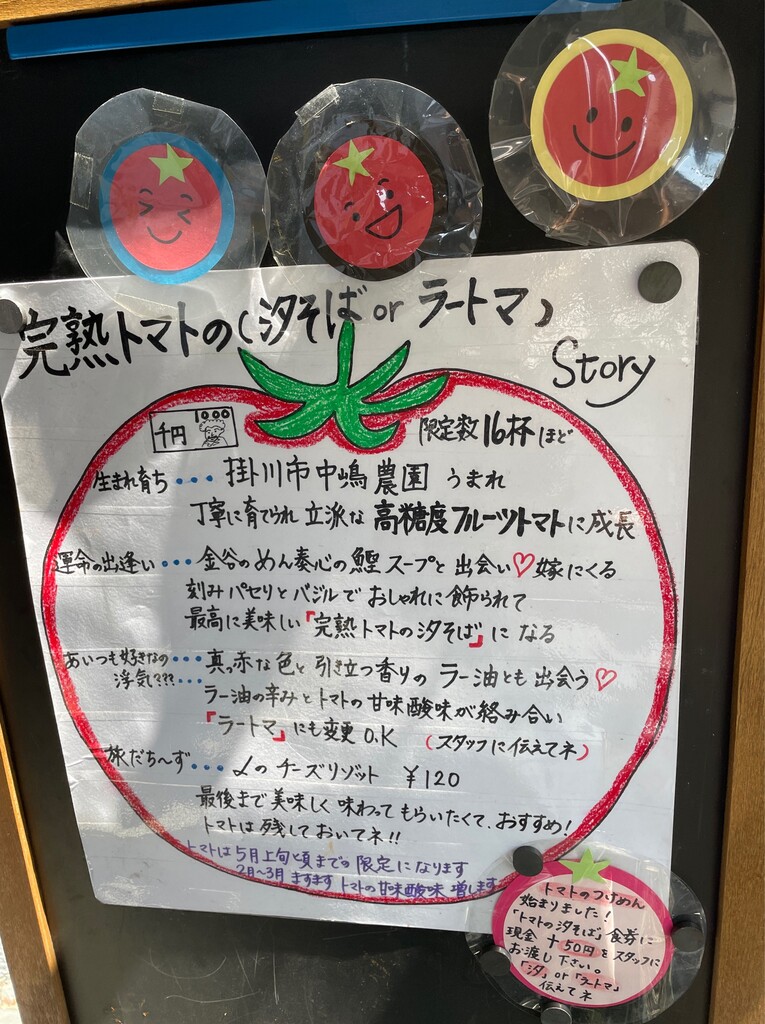 完熟トマトの(汐そば or ラートマ)
Story
千円 1000
限定数16杯ほど
生まれ育ち・・・掛川市中嶋農園うまれ
丁寧に育てられ立派な高糖度フルーツトマトに成長
運命の出逢い・・・金谷のめん奏心の鰹スープと出会い♡嫁にくる
刻みパセリとバジルでおしゃれに飾られて
最高に美味しい「完熟トマトの汐そば」になる
あいつも好きなの・・・真っ赤な色と引き立つ香りのラー油とも出会う♡
浮気???・・・ラー油の辛みとトマトの甘味酸味が絡み合い
「ラートマ」にも変更O.K (スタッフに伝えてネ)
旅だち〜ず・・・〆のチーズリゾット ¥120
最後まで美味しく味わってもらいたくて、おすすめ!
トマトは残しておいてネ!!
トマトは5月上旬頃までの限定になります
2月〜3月ますますトマトの甘味酸味増します
トマトのつけめん
始まりました!
「トマトの汐そば」食券に
現金+50円をスタッフに
お渡し下さい。
「汐」or「ラートマ」
伝えてネ